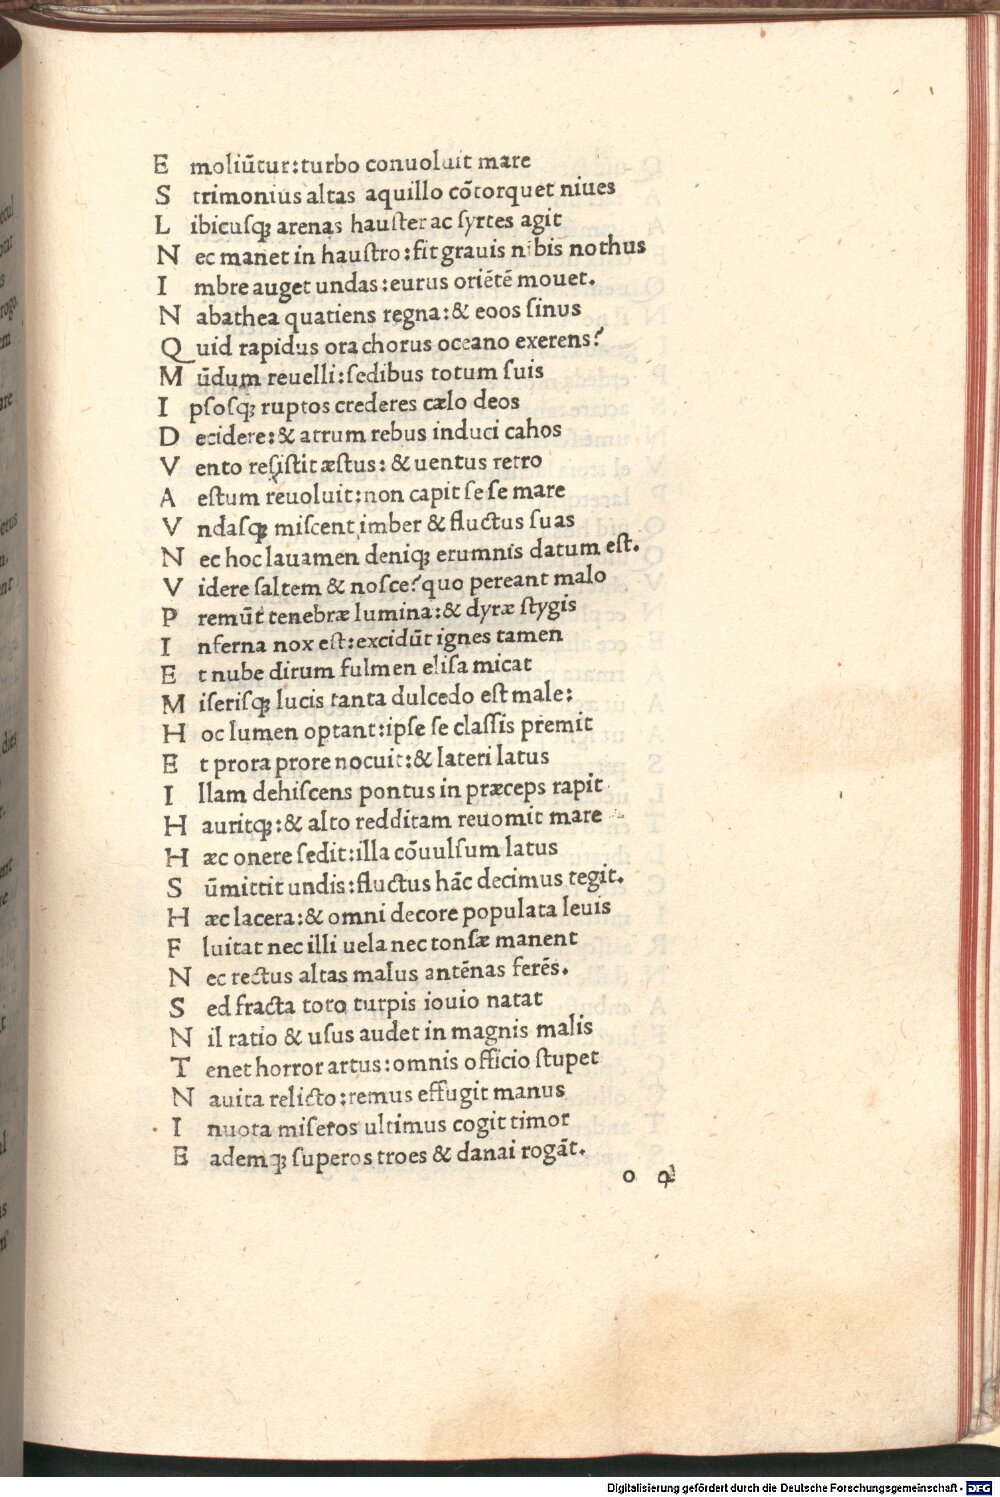 E moliūtur:turbo conuoluit mare
S trimonius altas aquillo cōtorquet niues
L ibicuſqꝫ arenas hauſter ac ſyrtes agit
N ec manet in hauſtro:fit grauis nibis nothus
I mbre auget undas:eurus oriētē mouet.
N abathea quatiens regna:& eoos ſinus
Q uid rapidus ora chorus oceano exerens?
M ūdum reuelli:ſedibus totum ſuis
I pſoſqꝫ ruptos crederes cælo deos
D ecidere:& atrum rebus induci cahos
V ento reſiſtit æſtus:& uentus retro
A eſtum reuoluit:non capit ſe ſe mare
V ndaſqꝫ miſcent imber & fluctus ſuas
N ec hoc lauamen deniqꝫ erumnis datum eſt.
V idere ſaltem & noſce?quo pereant malo
P remūt tenebræ lumina:& dyræ ſtygis
I nferna nox eſt:excidūt ignes tamen
E t nube dirum fulmen eliſa micat
M iſeriſqꝫ lucis tanta dulcedo eſt male:
H oc lumen optant:ipſe ſe claſſis premit
E t prora prore nocuit:& lateri latus
I llam dehiſcens pontus in præceps rapit
H auritqꝫ:& alto redditam reuomit mare
H æc onere ſedit:illa cōuulſum latus
S ūmittit undis:fluctus hāc decimus tegit.
H æc lacera:& omni decore populata leuis
F luitat nec illi uela nec tonſæ manent
N ec rectus altas malus antēnas ferēs.
S ed fracta toto turpis iouio natat
N il ratio & uſus audet in magnis malis
T enet horror artus:omnis officio ſtupet
N auita relicto:remus effugit manus
I nuota miſeros ultimus cogit timor
E ademqꝫ ſuperos troes & danai rogāt.
o
Digitalisierung gefördert durch die Deutsche Forschungsgemeinschaft - DFG